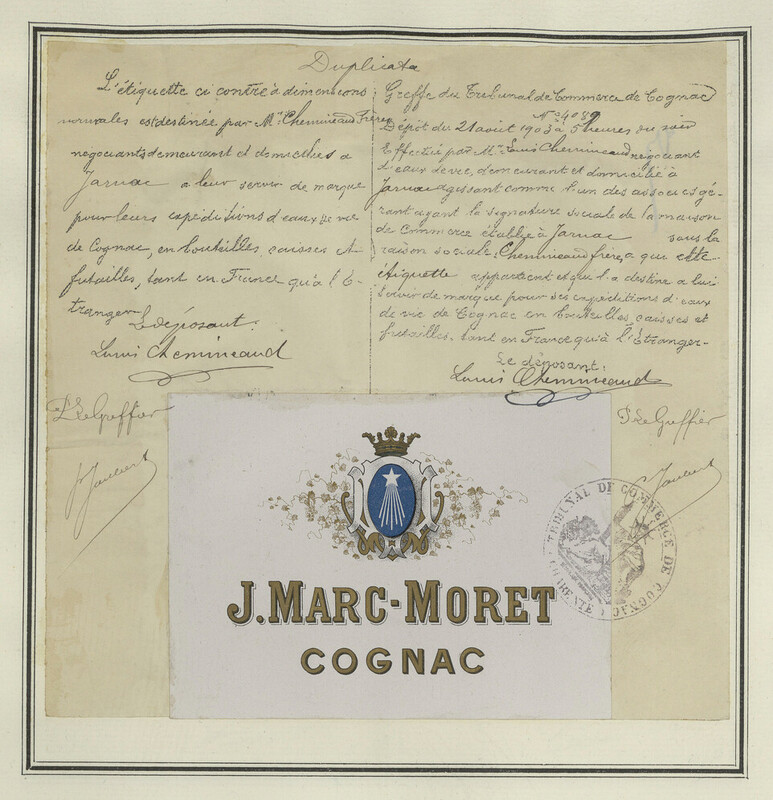 Duplicata
L'étiquette ci contre à dimensions
normales est destinée par Mrs Chemineaud Frères
négociants demeurant et domiciliés à
Jarnac a leur servir de marque
pour leurs expéditions d'eaux de vie
de Cognac, en bouteilles, caisses et
futailles, tant en France qu'à l'E-
tranger
Le déposant.
Louis Chemineaud
Pr Le Greffier
Greffe du Tribunal de Commerce de Cognac
No 4089
Dépôt du 21 août 1903 à 5 heures du soir
Effectué par Mr Louis Chemineaud négociant
d'eaux de vie, demeurant et domicilié à
Jarnac agissant comme l'un des associés gé-
rant ayant la signature sociale de la maison
de Commerce établie à Jarnac sous la
raison sociale: Chemineaud frères, à que cette
étiquette appartient et qu'il a destine a lui
servir de marque pour ses expéditions d'eaux
de vie de Cognac en bouteilles, caisses et
futailles, tant en France qu'à l'Etranger-
Le déposant:
Louis Chemineaud
Pr Le Greffier
J. MARC-MORET
COGNAC
TRIBUNAL DE COMMERCE DE COGNAC
CHARENTE